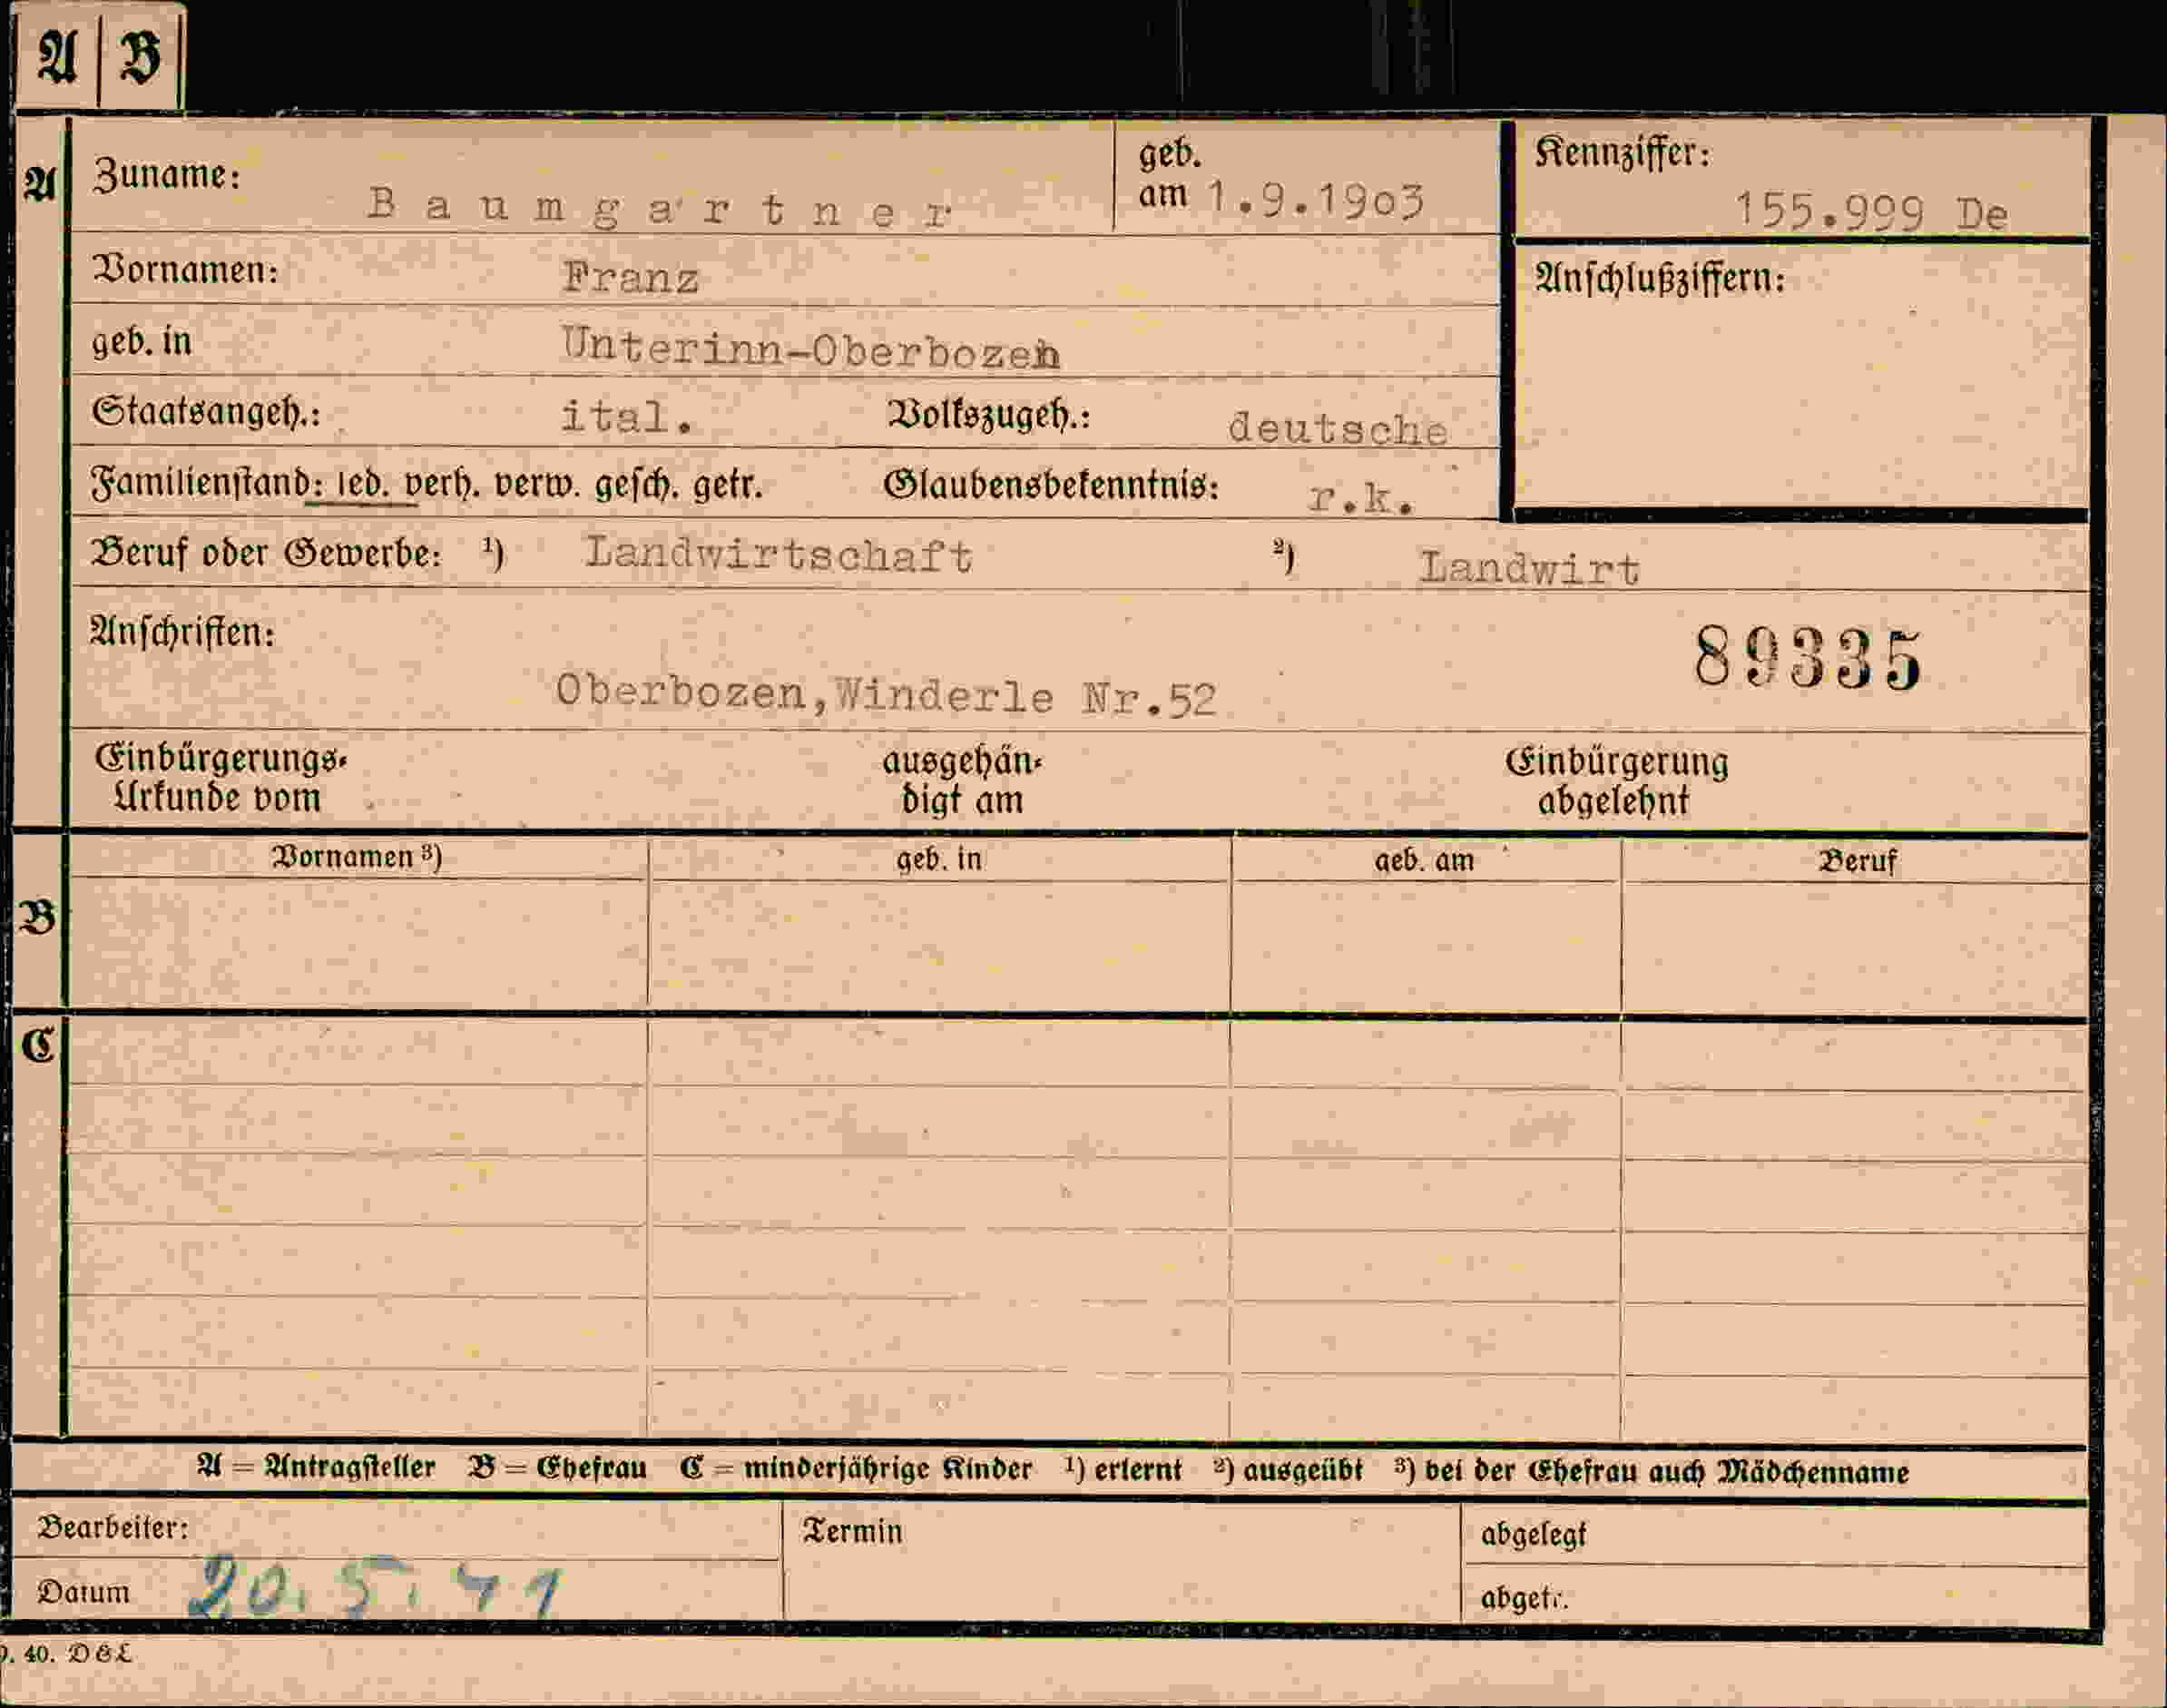 A B
A Zuname: Baumgartner geb. am 1.9.1903 Kennziffer: 155.999 De
Vornamen: Franz Anschlußziffern:
geb. in Unterinn-Oberbozen
Staatsangeh.: ital. Volkszugeh.: deutsche
Familienstand: led. verh. verw. gesch. getr. Glaubensbekenntnis: r.k.
Beruf oder Gewerbe: ¹) Landwirtschaft ²) Landwirt
Anschriften: 89335
Oberbozen,Winderle Nr.52
Einbürgerungs- ausgehän- Einbürgerung
Urkunde vom digt am abgelehnt
Vornamen ³) geb. in geb. am Beruf
B
C
A = Antragsteller B = Ehefrau C = minderjährige Kinder ¹) erlernt ²) ausgeübt ³) bei der Ehefrau auch Mädchenname
Bearbeiter: Termin abgelegt
Datum 20.5.41 abgetr.
40. DGL